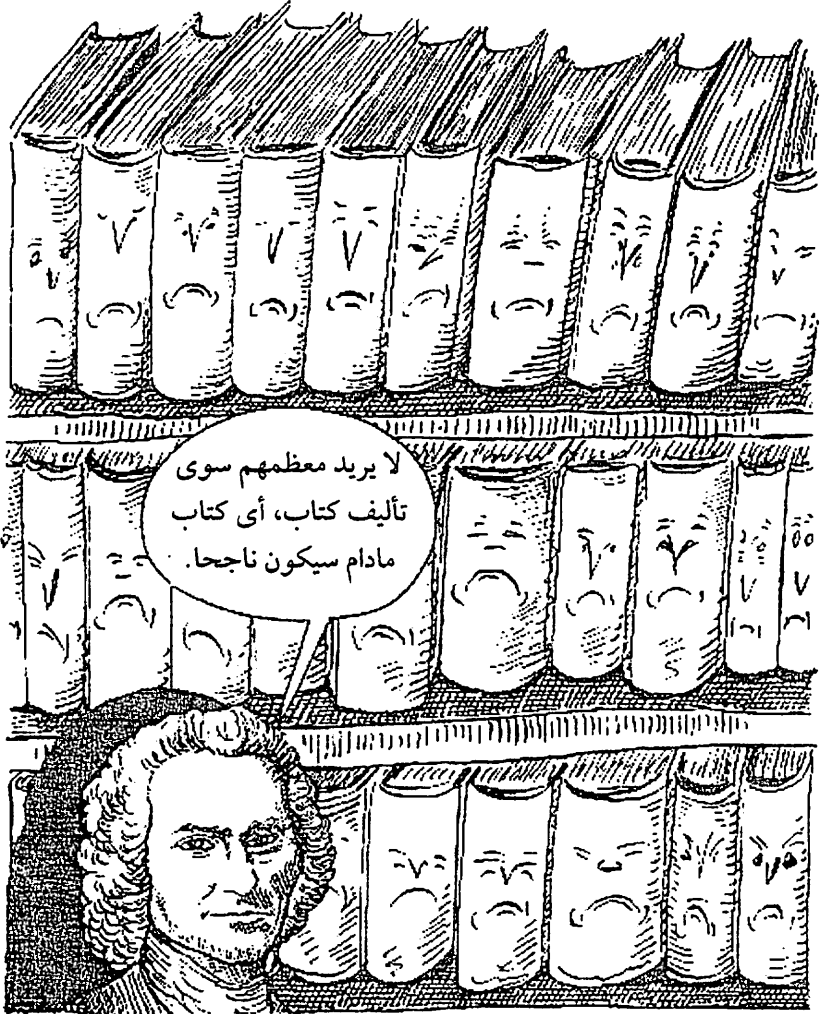 لا يريد معظمهم سوى
تأليف كتاب، أى كتاب
مادام سيكون ناجحا.